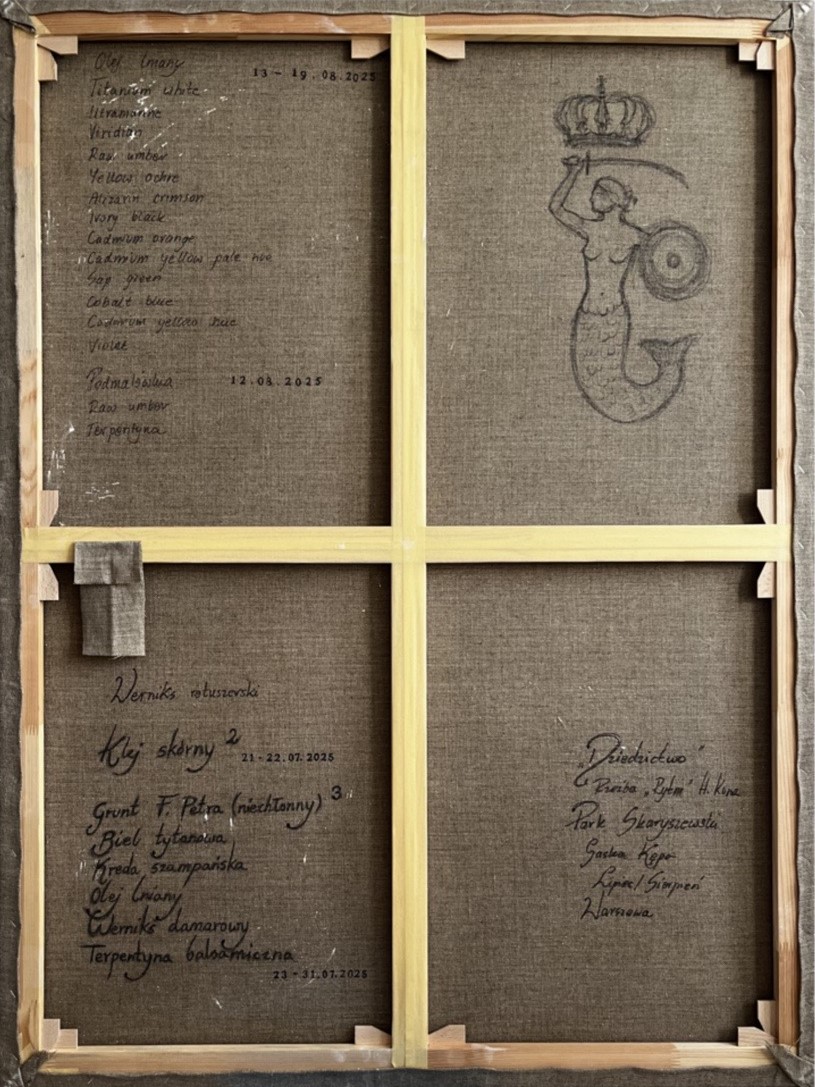 Olej lniany
13 - 19.08.2025
Titanium white
Ultramarine
Viridian
Raw umber
Yellow ochre
Alizarin crimson
Ivory black
Cadmium orange
Cadmium yellow pale hue
Sap green
Cobalt blue
Cadmium yellow hue
Violet
Podmalówka 12.08.2025
Raw umber
Terpentyna
Werniks retuszerski
Klej skórny 2
21 - 22.07.2025
Grunt F. Petra (niechłonny) 3
Biel tytanowa
Kreda szampańska
Olej lniany
Werniks damarowy
Terpentyna balsamiczna
23 - 31.07.2025
„Dziedzictwo”
Rzeźba „Rytm” H. Kuna
Park Skaryszewski
Saska Kępa
Lipiec/Sierpień
Warszawa